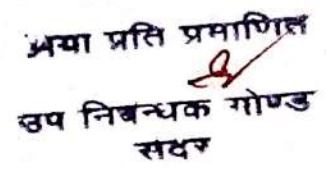 भया प्रति प्रमाणित
उप निबन्धक गोण्ड
सदर